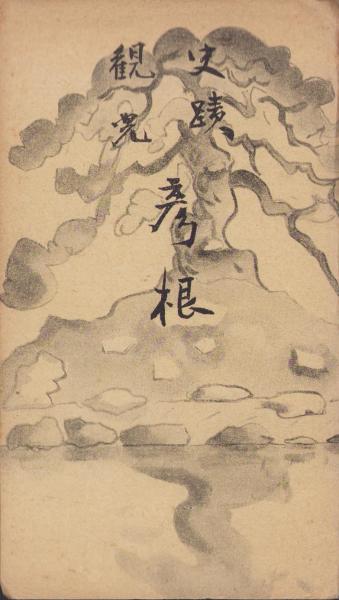 史蹟
観光
彦根